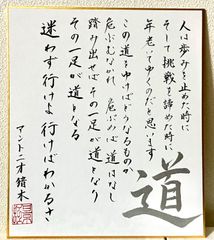 人は歩みを止めた時に
そして挑戦を諦めた時に
年老いてゆくのだと思います
この道をゆけばどうなるものか
危ぶむなかれ 危ぶめば道はなし
踏み出せば その一足が道となり
その一足が道となる
迷わず行けよ 行けばわかるさ
アントニオ猪木
道